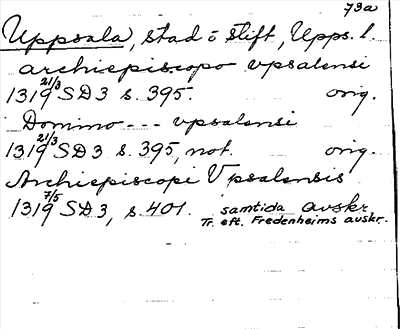 73a
Uppsala, stad o stift, Upps. l.
archiepiscopo vpsalensi
1319 21/3 SD 3 s. 395. orig.
Domino --- vpsalensi
1319 21/3 SD 3 s. 395, not. orig.
Archiepiscopi Vpsalensis
1319 7/5 SD 3, s. 401. samtida avskr.
Tr. eft. Fredenheims avskr.